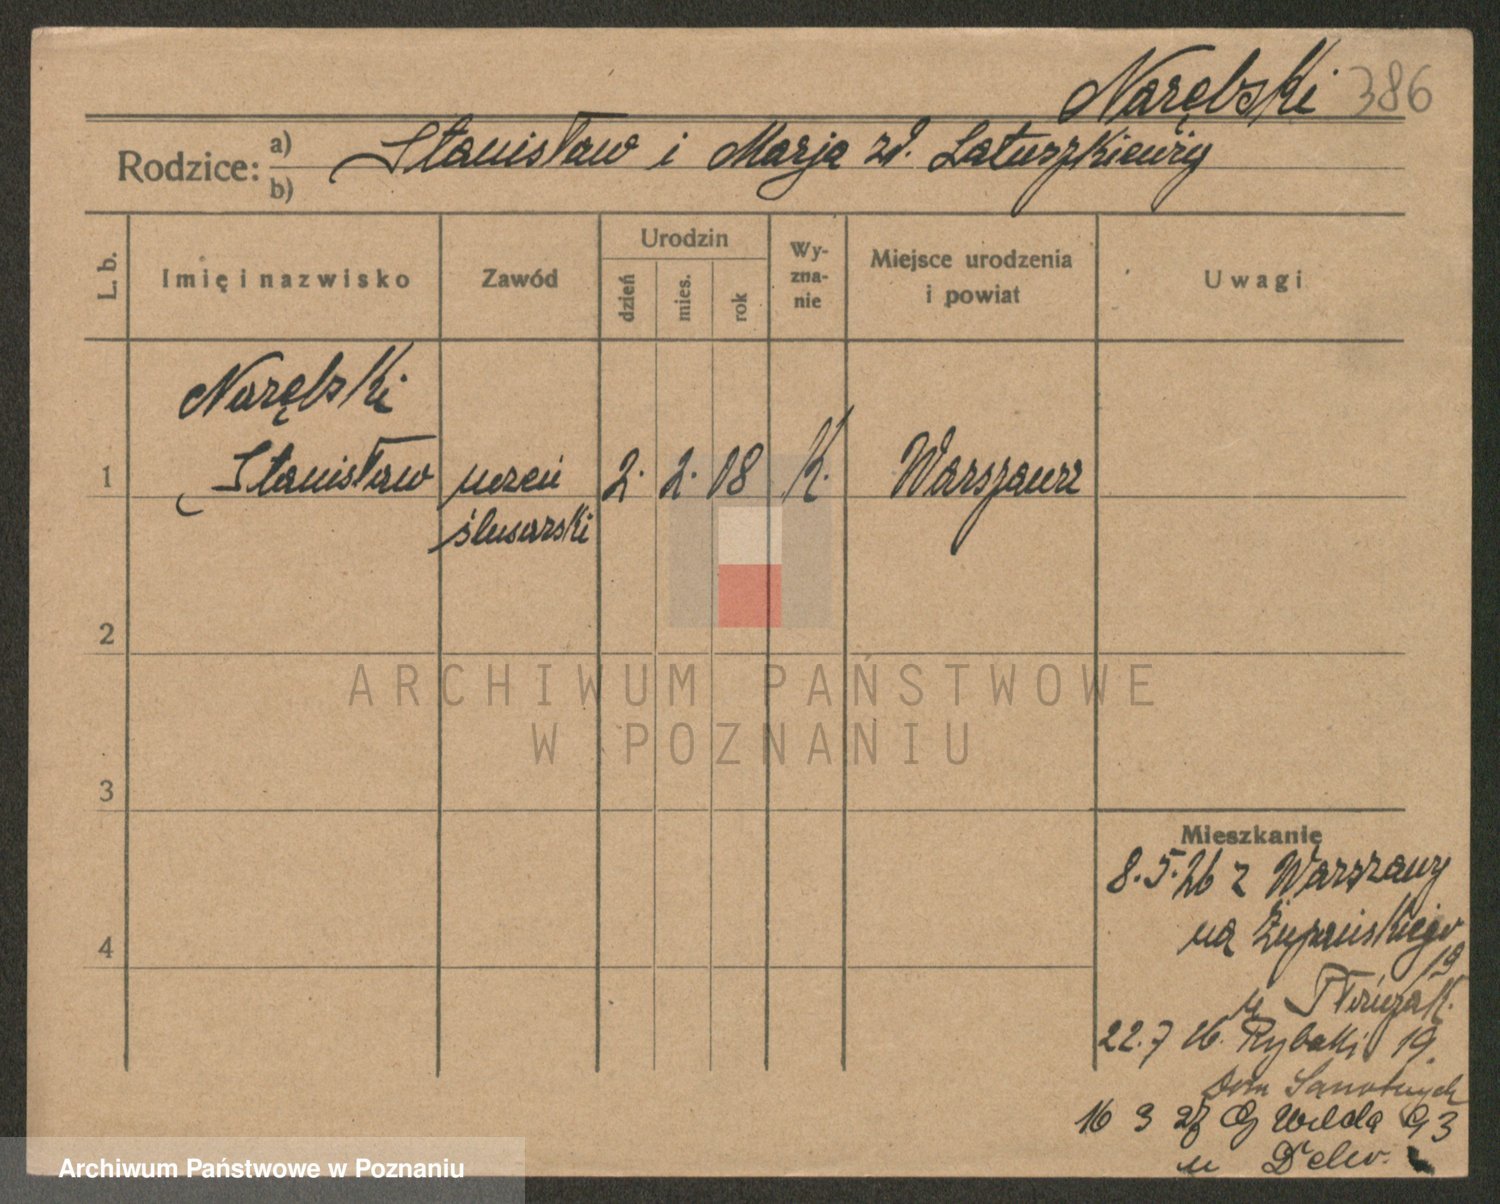 Narębski 386
Rodzice: a) Stanisław i Marja zd. Latuszkiewicz
b)
L. b. Imię i nazwisko Zawód Urodzin dzień mies. rok Wyznanie Miejsce urodzenia i powiat Uwagi
Narębski
1 Stanisław uczeń 2. 2. 08 K. Warszawa
ślusarski
2
ARCHIWUM PAŃSTWOWE
W POZNANIU
3
Mieszkanie
8.5.26 z Warszawy
na Żupańskiego
4
19
u
22.7 26. Rybaki 19.
Dom Samotnych
16 3 27 G Wilda 93
u
Archiwum Państwowe w Poznaniu